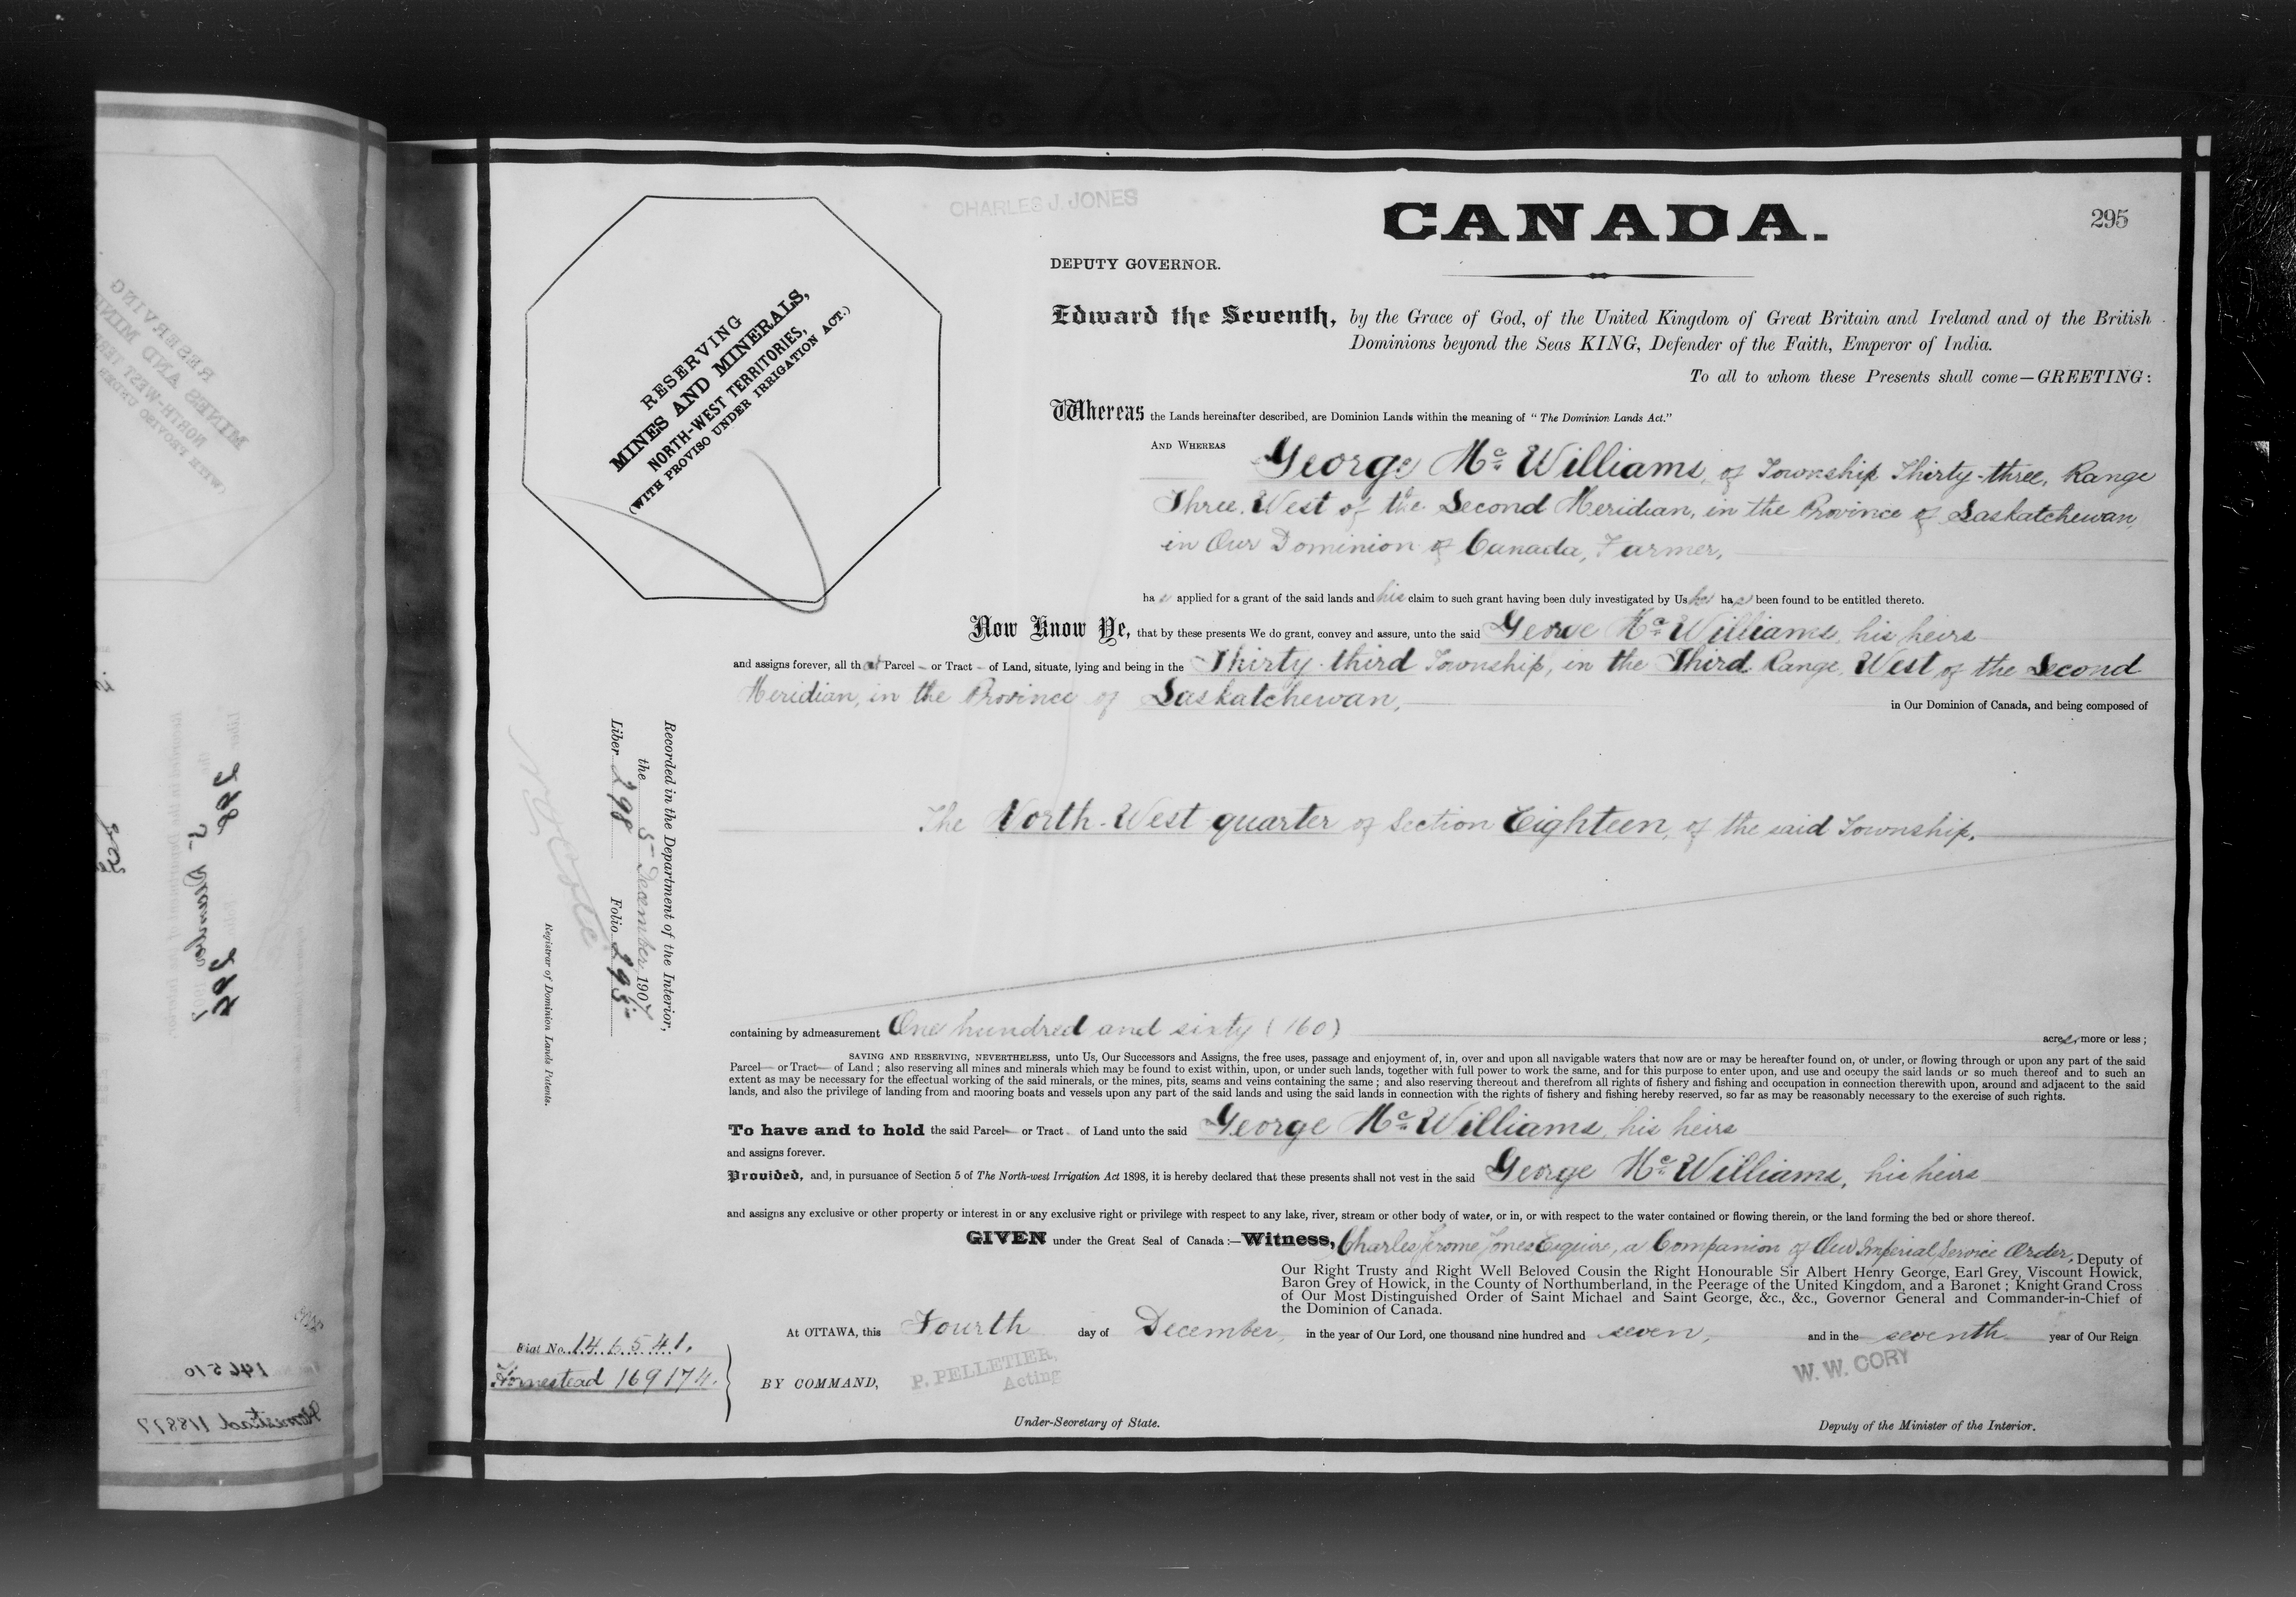 CHARLES J. JONES
CANADA.
295
DEPUTY GOVERNOR.
RESERVING
MINES AND MINERALS,
NORTH-WEST TERRITORIES,
(WITH PROVISO UNDER IRRIGATION ACT.)
Edward the Seventh, by the Grace of God, of the United Kingdom of Great Britain and Ireland and of the British
Dominions beyond the Seas KING, Defender of the Faith, Emperor of India.
To all to whom these Presents shall come—GREETING:
Whereas the Lands hereinafter described, are Dominion Lands within the meaning of "The Dominion Lands Act."
AND WHEREAS George Mc Williams, of Township Thirty-three, Range
Three, West of the Second Meridian, in the Province of Saskatchewan,
in Our Dominion of Canada, Farmer,
has applied for a grant of the said lands and his claim to such grant having been duly investigated by Us he has been found to be entitled thereto.
Now Know Ye, that by these presents We do grant, convey and assure, unto the said George Mc Williams, his heirs
and assigns forever, all that Parcel or Tract of Land, situate, lying and being in the Thirty-third Township, in the Third Range, West of the Second
Meridian, in the Province of Saskatchewan,
in Our Dominion of Canada, and being composed of
The North-West quarter of Section Eighteen, of the said Township.
Recorded in the Department of the Interior,
the 5 December, 1907
Liber 298 Folio 295
Registrar of Dominion Lands Patents.
containing by admeasurement One hundred and sixty (160) acres, more or less;
SAVING AND RESERVING, NEVERTHELESS, unto Us, Our Successors and Assigns, the free uses, passage and enjoyment of, in, over and upon all navigable waters that now are or may be hereafter found on, or under, or flowing through or upon any part of the said
Parcel or Tract of Land; also reserving all mines and minerals which may be found to exist within, upon, or under such lands, together with full power to work the same, and for this purpose to enter upon, and use and occupy the said lands or so much thereof and to such an
extent as may be necessary for the effectual working of the said minerals, or the mines, pits, seams and veins containing the same; and also reserving thereout and therefrom all rights of fishery and fishing and occupation in connection therewith upon, around and adjacent to the said
lands, and also the privilege of landing from and mooring boats and vessels upon any part of the said lands and using the said lands in connection with the rights of fishery and fishing hereby reserved, so far as may be reasonably necessary to the exercise of such rights.
To have and to hold the said Parcel or Tract of Land unto the said George Mc Williams, his heirs
and assigns forever.
Provided, and, in pursuance of Section 5 of The North-west Irrigation Act 1898, it is hereby declared that these presents shall not vest in the said George Mc Williams, his heirs
and assigns any exclusive or other property or interest in or any exclusive right or privilege with respect to any lake, river, stream or other body of water, or in, or with respect to the water contained or flowing therein, or the land forming the bed or shore thereof.
GIVEN under the Great Seal of Canada:—Witness, Charles Jerome Jones Esquire, a Companion of Our Imperial Service Order, Deputy of
Our Right Trusty and Right Well Beloved Cousin the Right Honourable Sir Albert Henry George, Earl Grey, Viscount Howick,
Baron Grey of Howick, in the County of Northumberland, in the Peerage of the United Kingdom, and a Baronet; Knight Grand Cross
of Our Most Distinguished Order of Saint Michael and Saint George, &c., &c., Governor General and Commander-in-Chief of
the Dominion of Canada.
At OTTAWA, this Fourth day of December, in the year of Our Lord, one thousand nine hundred and seven, and in the seventh year of Our Reign
Fiat No. 146541.
Homestead 169174.
BY COMMAND,
P. PELLETIER,
Acting
W. W. CORY
Under-Secretary of State.
Deputy of the Minister of the Interior.
146510
Homestead 118877